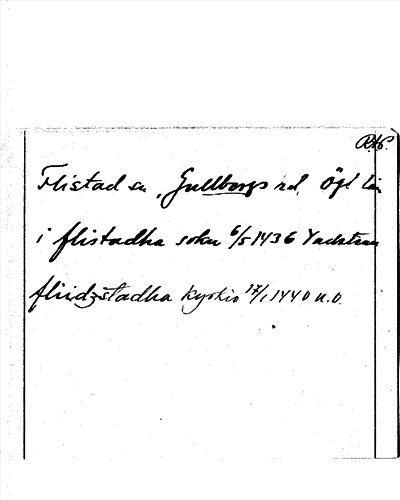 RAP.
Flistad sn, Gullbergs hd, Ögl län
i flistadha sokn 6/5 1436 Vadstena
fliidzstadha kyrkio 17/1 1440 n.o.